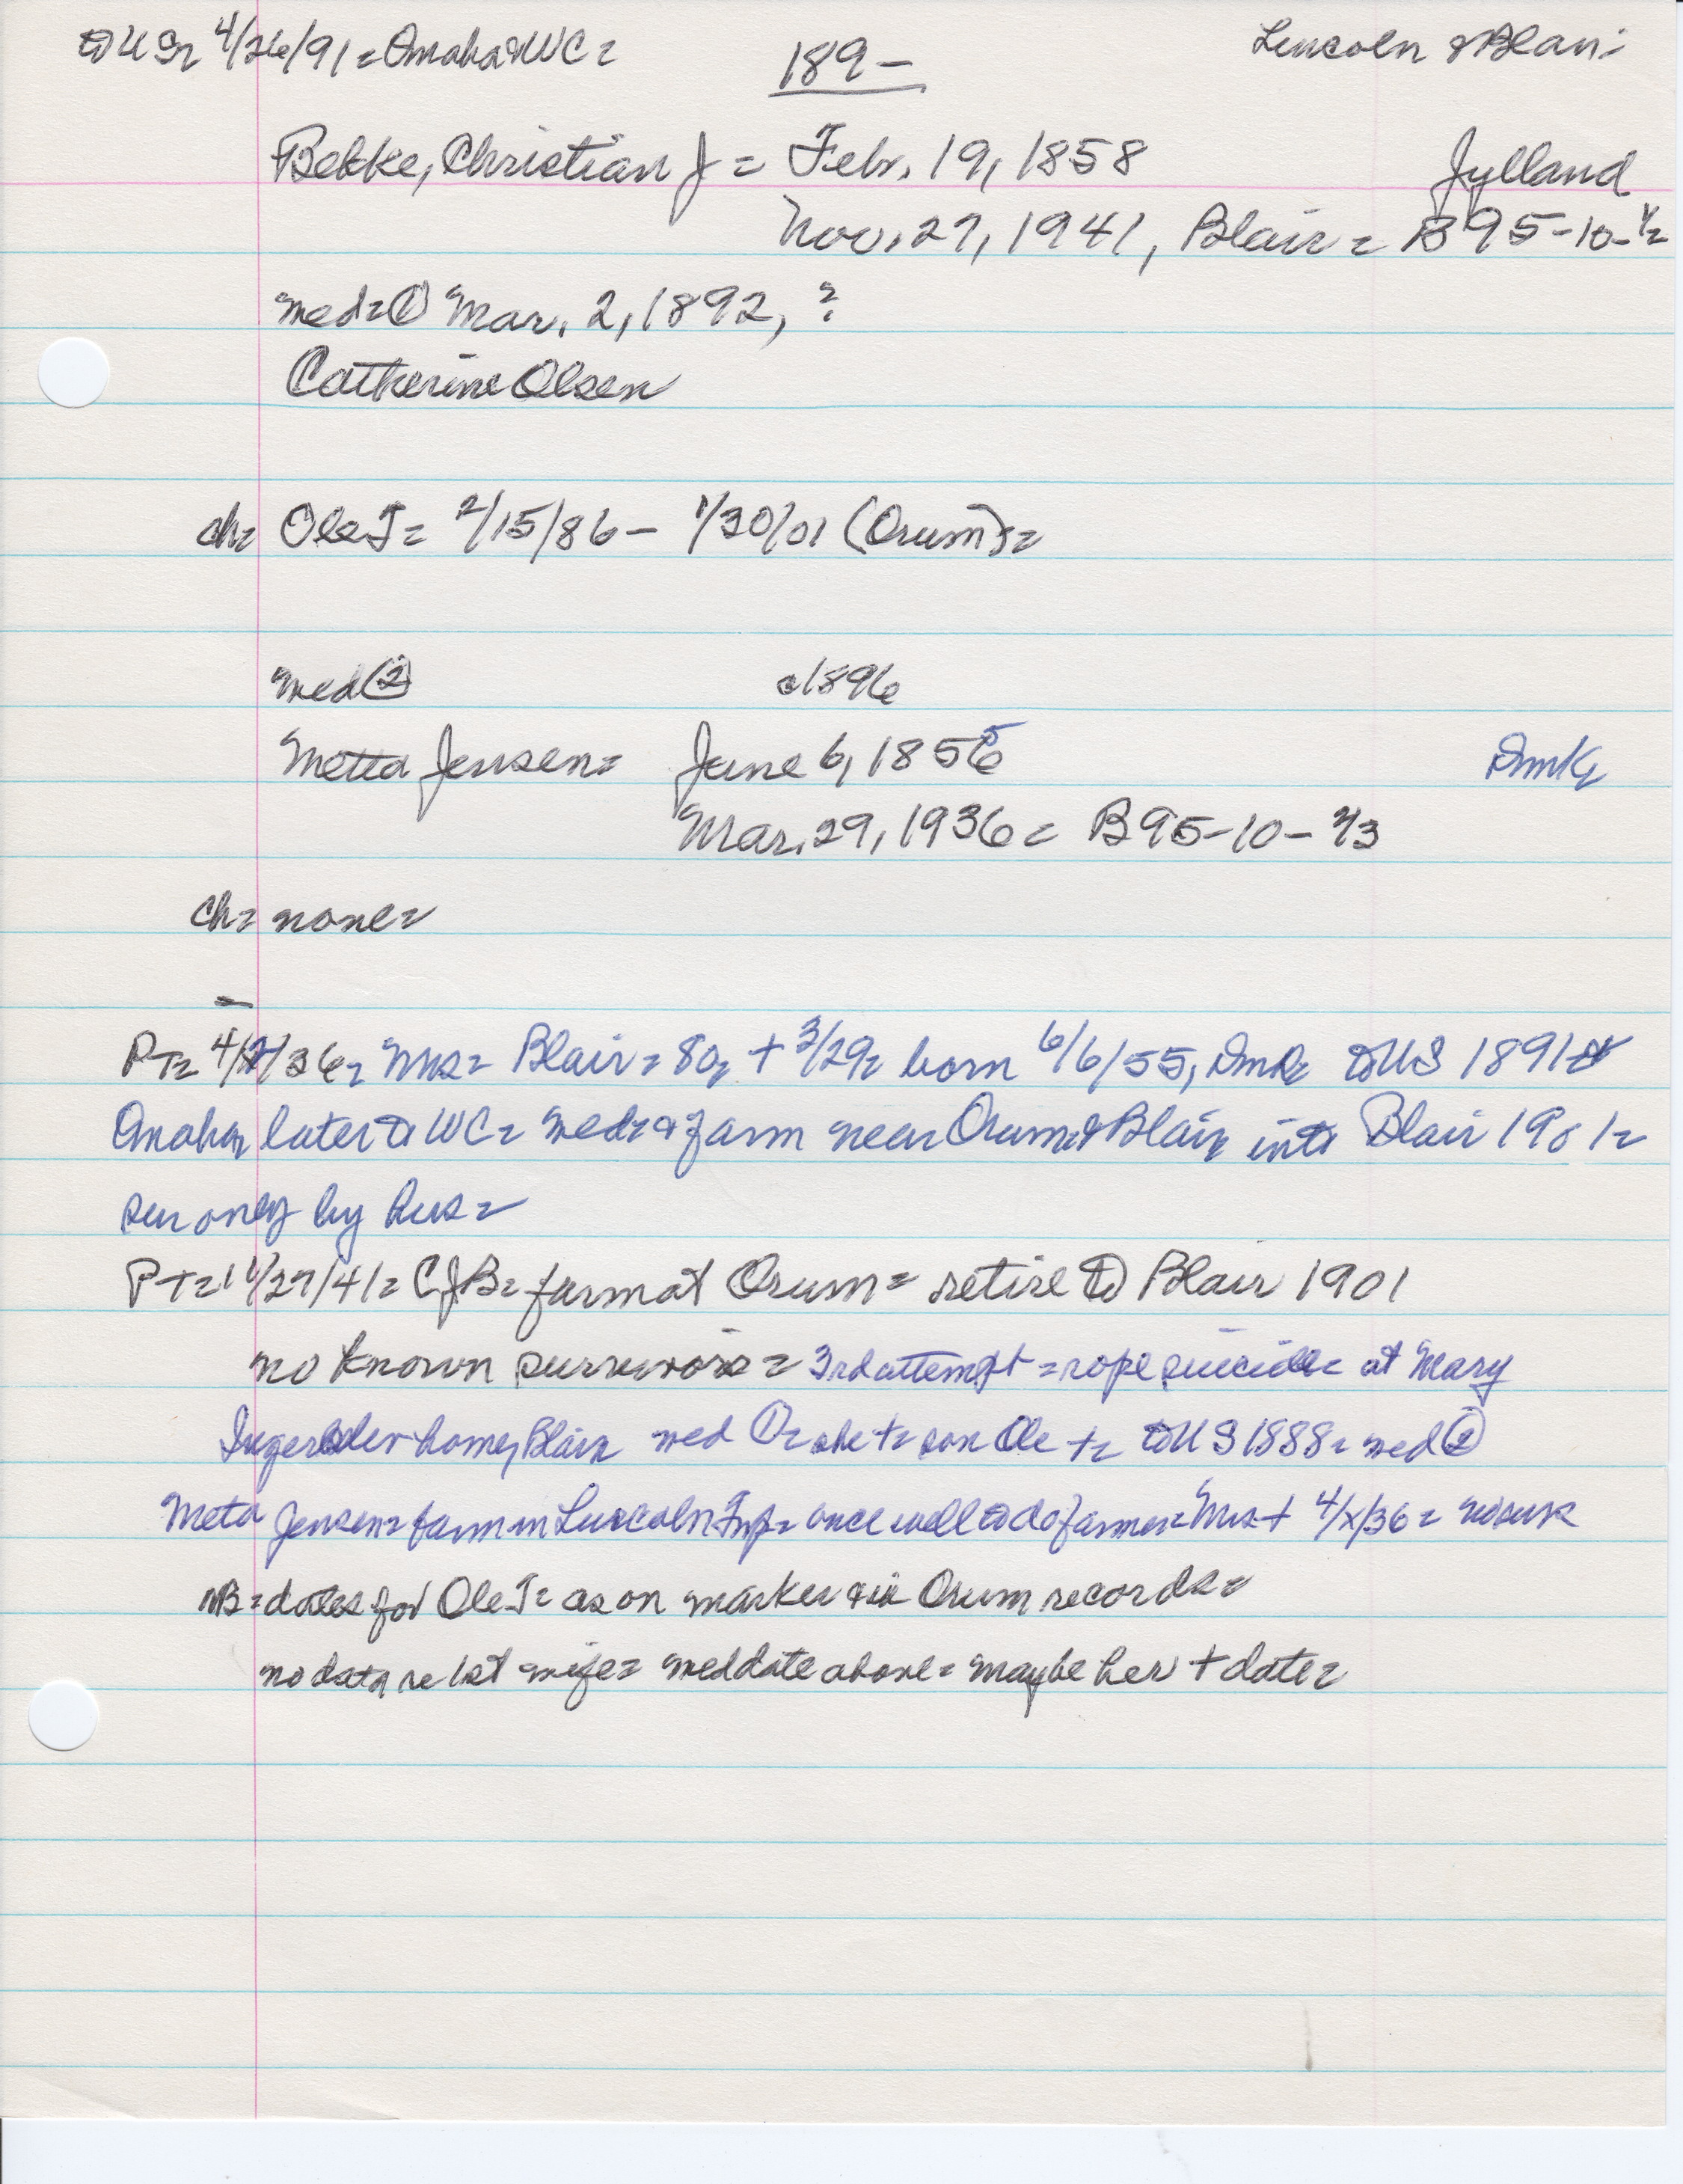 to US= 4/26/91= Omaha & WC=
189-
Lincoln & Blair
Bekke, Christian J = Febr. 19, 1858 Jylland
Nov. 27, 1941, Blair = B95-10-1/2
med= ① Mar. 2, 1892, ?
Catherine Olsen
ch= Ole J= 2/15/86 - 1/30/01 (Orum)=
med ② c1896
Metta Jensen= June 6, 1855 Dmk=
Mar. 29, 1936 = B95-10-2/3
ch= none=
PT= 4/2/36= Mrs= Blair= 80= + 3/29= born 6/6/55, Dmk= to US 1891
Omaha, later to WC= med= & farm near Orum & Blair= into Blair 1901=
sur only by hus=
PT= 11/27/41= CJB= farm at Orum= retire to Blair 1901
no known survivors = 3rd attempt = rope suicide= at Mary
home, Blair= med ①= she += son Ole += to US 1888= med ②
Meta Jensen= farm in Lincoln Twp= once well to do farmer= Mrs + 4/x/36= no surs
NB= dates for Ole J= as on marker & in Orum records=
no data re 1st wife= med date above= maybe her + date=